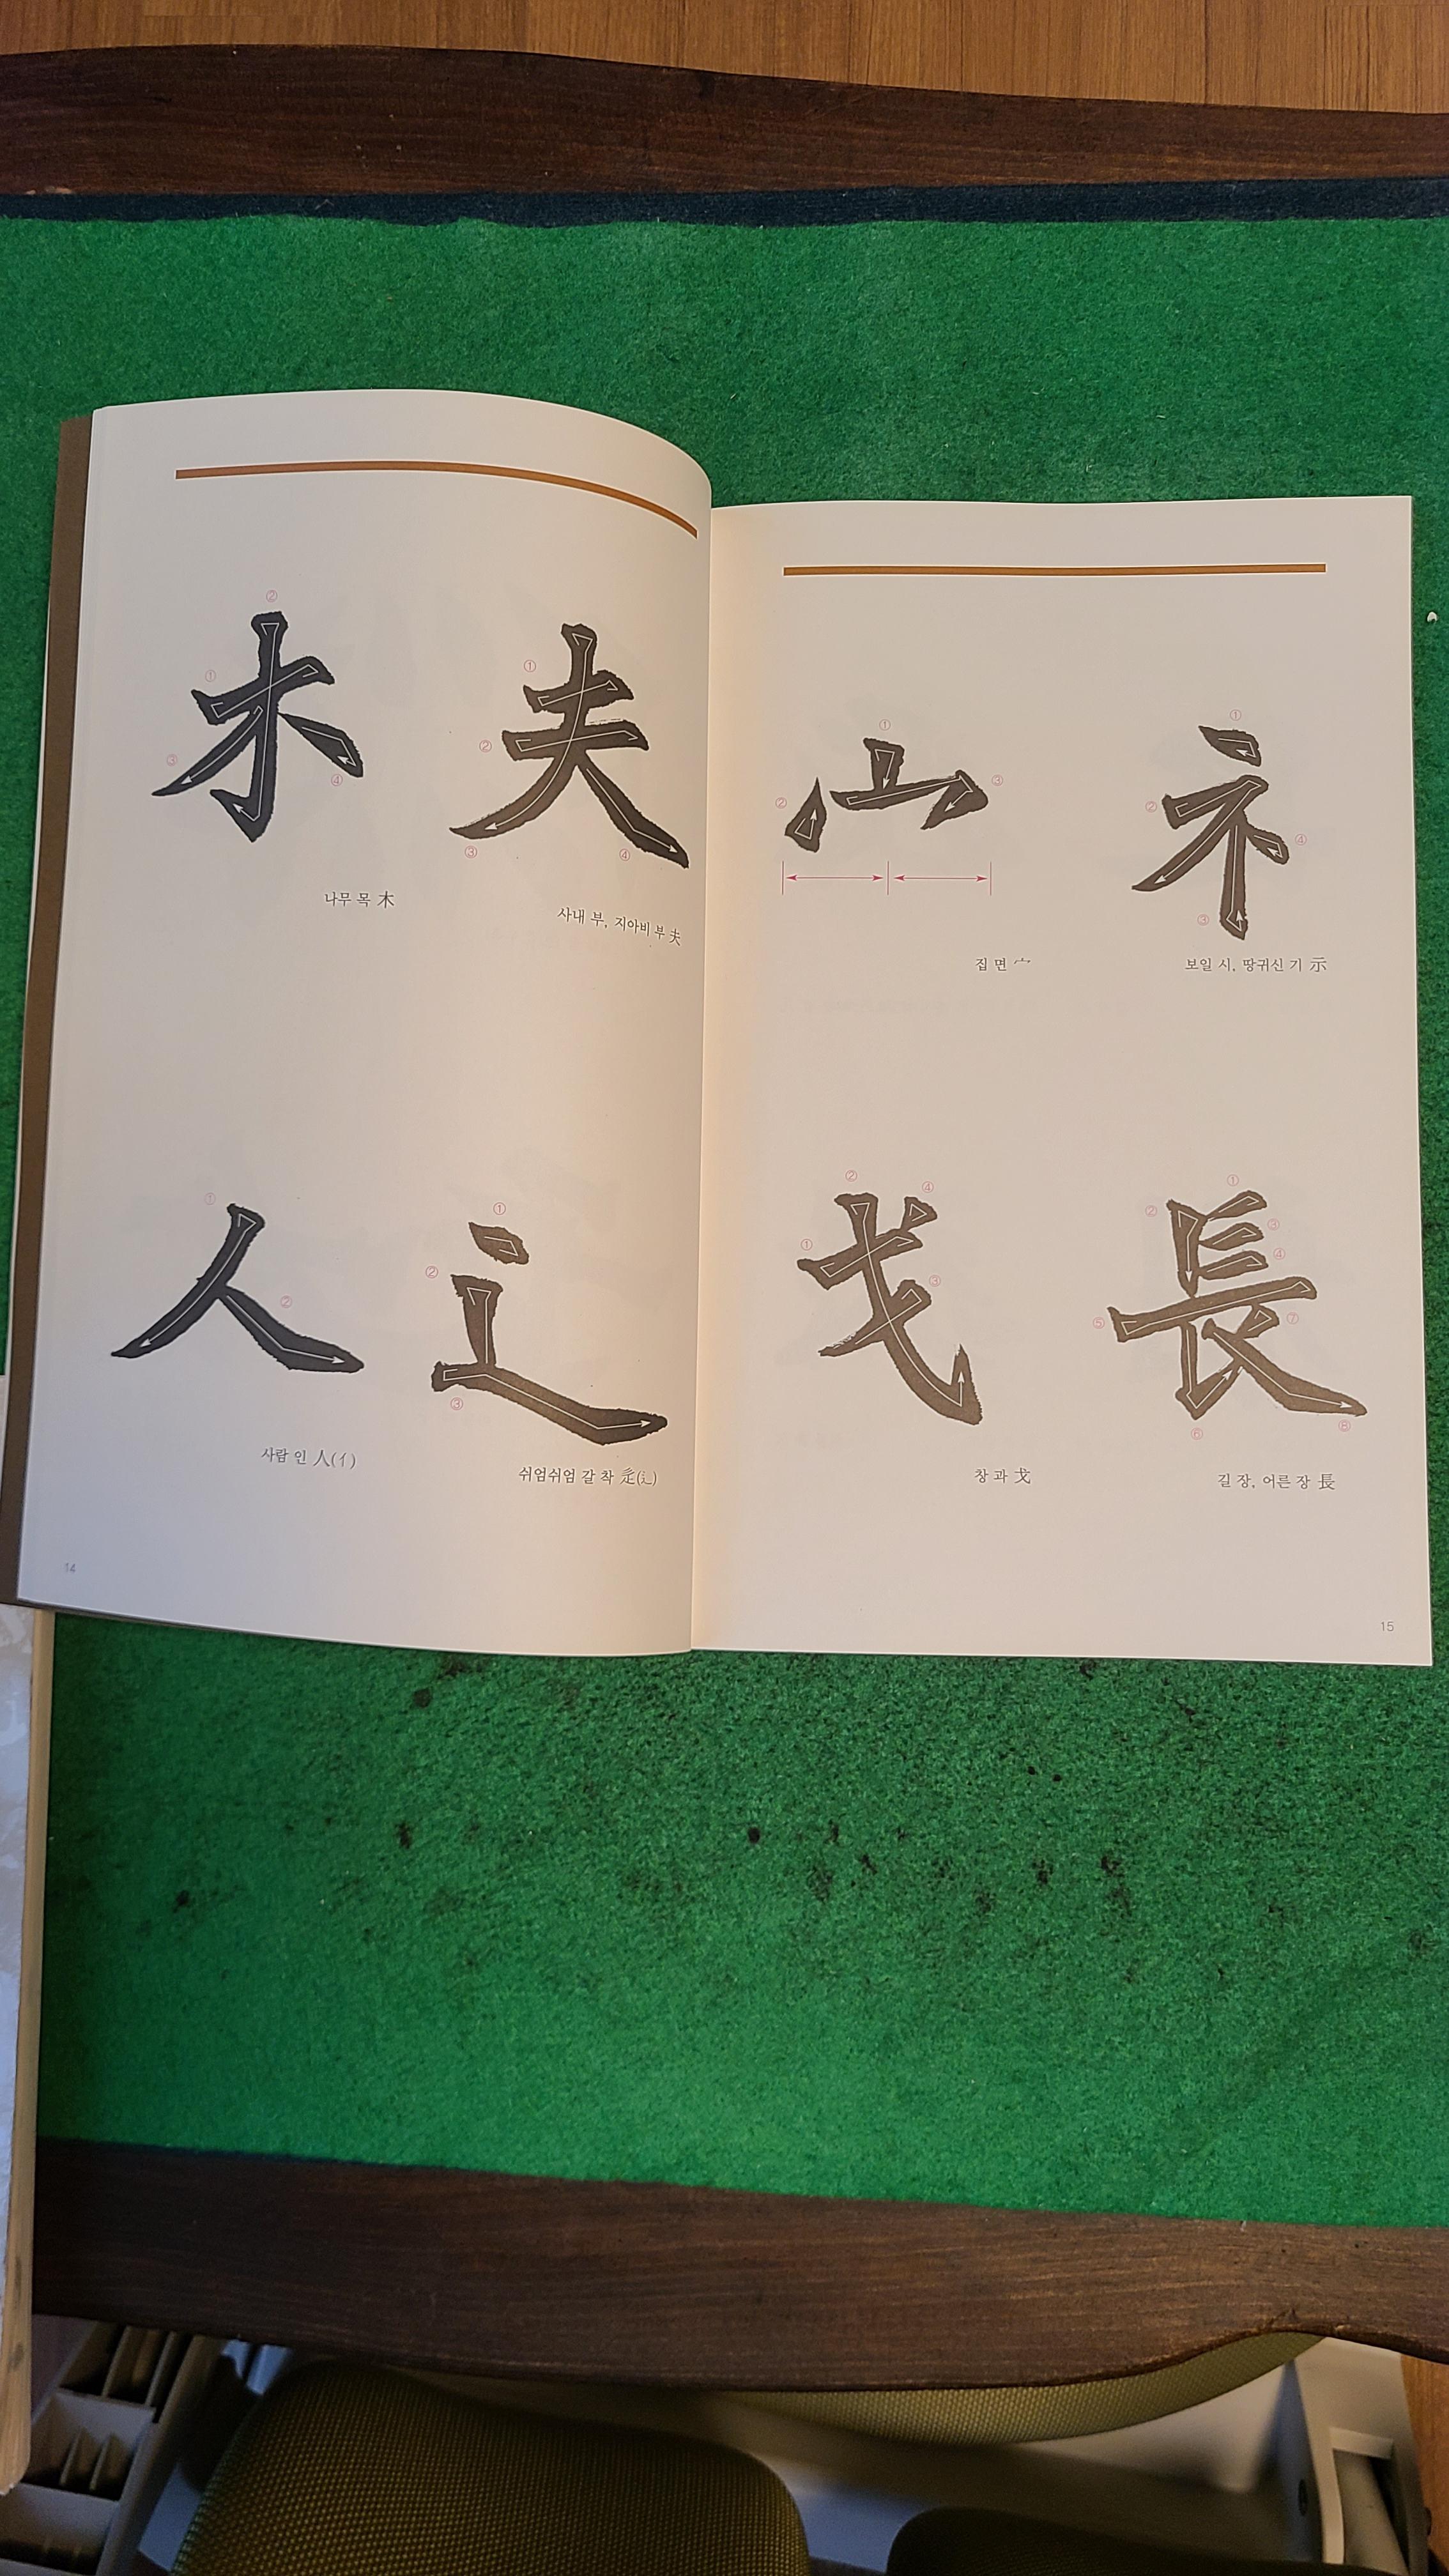 ② ①
① ②
③ ④ ③ ④
木 夫
나무 목 木
사내 부, 지아비 부 夫
① ①
② ② ③
人 辶
사람 인 人(亻)
쉬엄쉬엄 갈 착 辵(辶)
14
① ② ③
① ② ③ ④
宀 礻
집 면 宀
보일 시, 땅귀신 기 示
① ② ③ ④
① ② ③ ④ ⑤ ⑥ ⑦ ⑧
戈 長
창 과 戈
길 장, 어른 장 長
15